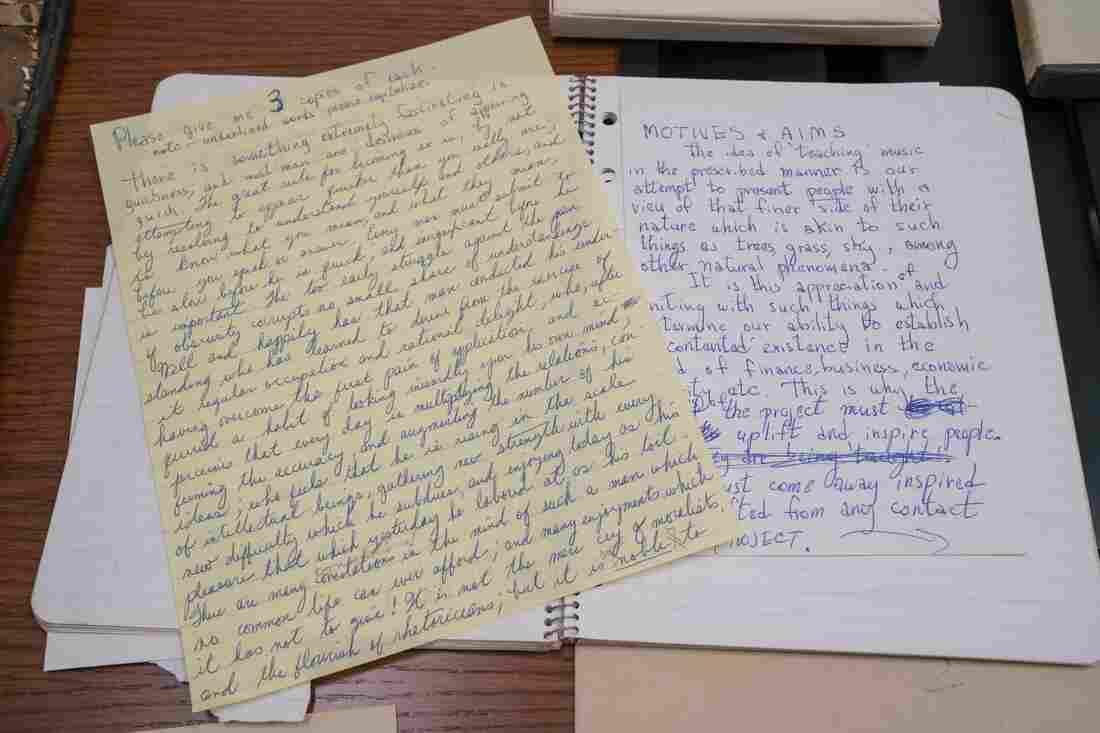 Please give me 3 copies of each.
note - underlined words means capitalize.
There is something extremely fascinating in
quickness; and most men are desirous of appearing
quick. The great rule for becoming so is, by not
attempting to appear quicker than you really are,
by resolving to understand yourself and others, and
to know what you mean, and what they mean,
before you speak or answer. Every man must submit to
be slow before he is quick; and insignificant before he
is important. The too early struggle against the pain
of obscurity corrupts no small share of understandings.
Well and happily has that man conducted his under-
standing who has learned to derive from the exercise of
it regular occupation and rational delight; who, after
having overcome the first pain of application, and ac-
quired a habit of looking inwardly upon his own mind,
perceives that every day is multiplying the relations, con-
firming the accuracy, and augmenting the number of his
ideas; who feels that he is rising in the scale
of intellectual beings, gathering new strength with every
new difficulty which he subdues, and enjoying today as his
pleasure that which yesterday he labored at as his toil.
There are many consolation in the mind of such a man which
no common life can ever afford; and many enjoyments which
it has not to give! It is not the mere cry of moralists,
and the flourish of rhetoricians; but it is noble to
MOTIVES & AIMS
The idea of 'teaching' music
in the prescribed manner is our
attempt to present people with a
view of that finer side of their
nature which is akin to such
things as trees, grass, sky, among
other natural phenomena.
It is this appreciation of and
uniting with such things which
termine our ability to establish
contented existence in the
d of finance, business, economic
ty etc. This is why the
the project must
uplift and inspire people.
ey are being taught.
ust come away inspired
ted from any contact
PROJECT.